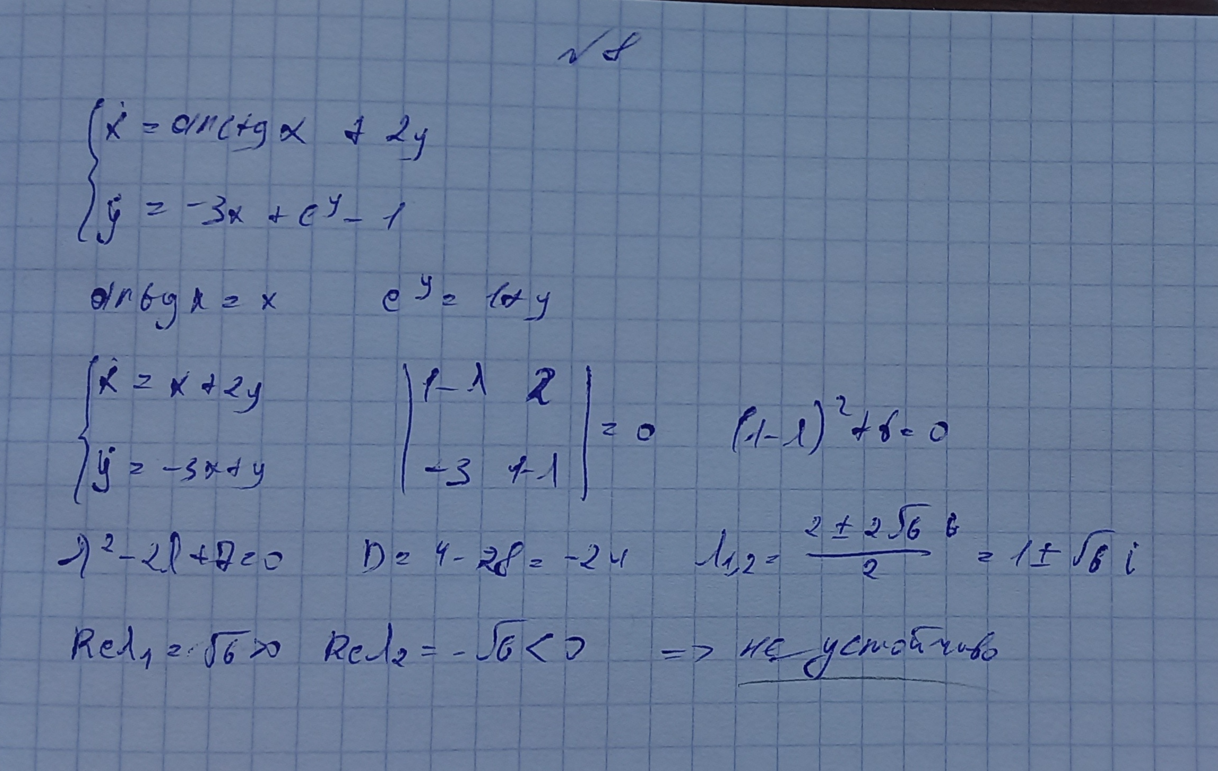 № 8
{ ẋ = arctg x + 2y
{ ẏ = -3x + e^y - 1
arctg x = x e^y = 1+y
{ ẋ = x + 2y |1-λ 2|
{ ẏ = -3x+y |-3 1-λ| = 0 (1-λ)² + 6 = 0
λ² - 2λ + 7 = 0 D = 4 - 28 = -24 λ₁,₂ = (2 ± 2√6 i)/2 = 1 ± √6 i
Reλ₁ = √6 > 0 Reλ₂ = -√6 < 0 => не устойчиво